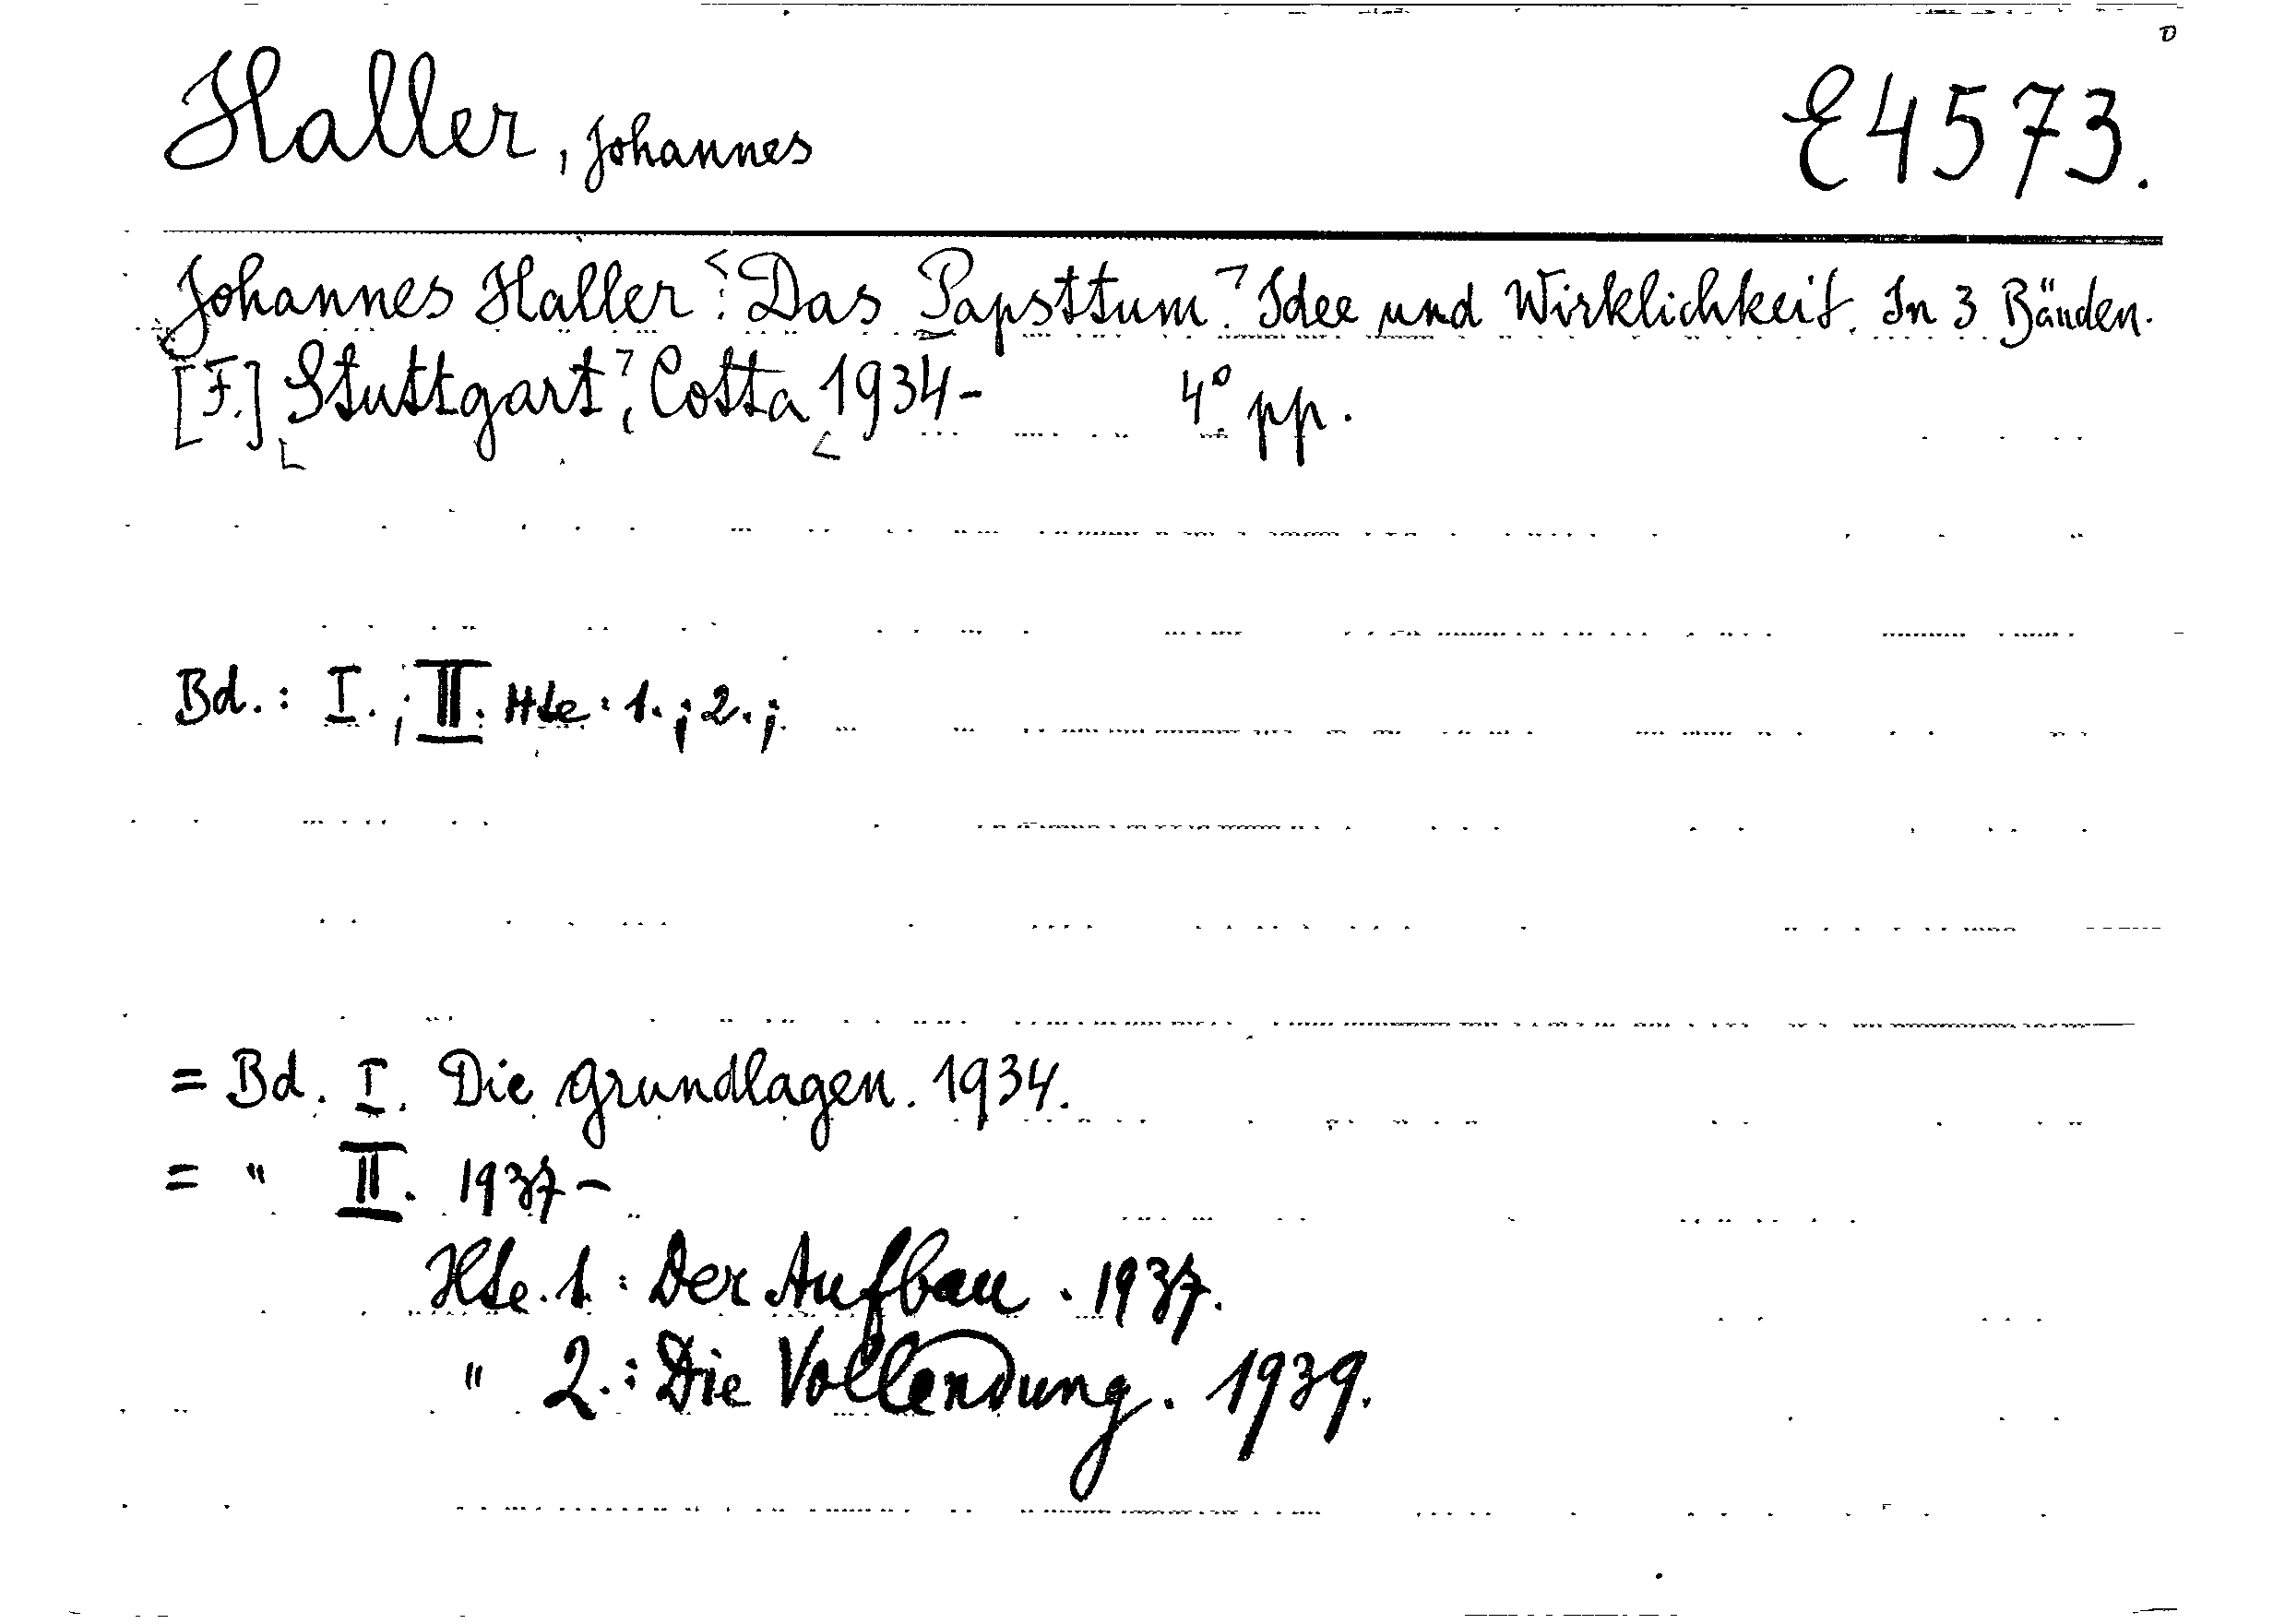 Haller, Johannes E4573.
Johannes Haller: Das Papsttum. Idee und Wirklichkeit. In 3 Bänden.
[F.] Stuttgart, Cotta 1934- 4° pp.
Bd.: I.; II. Hte: 1.; 2.;
= Bd. I. Die Grundlagen. 1934.
= " II. 1937-
Hte. 1.: Der Aufbau. 1937.
" 2.: Die Vollendung. 1939.